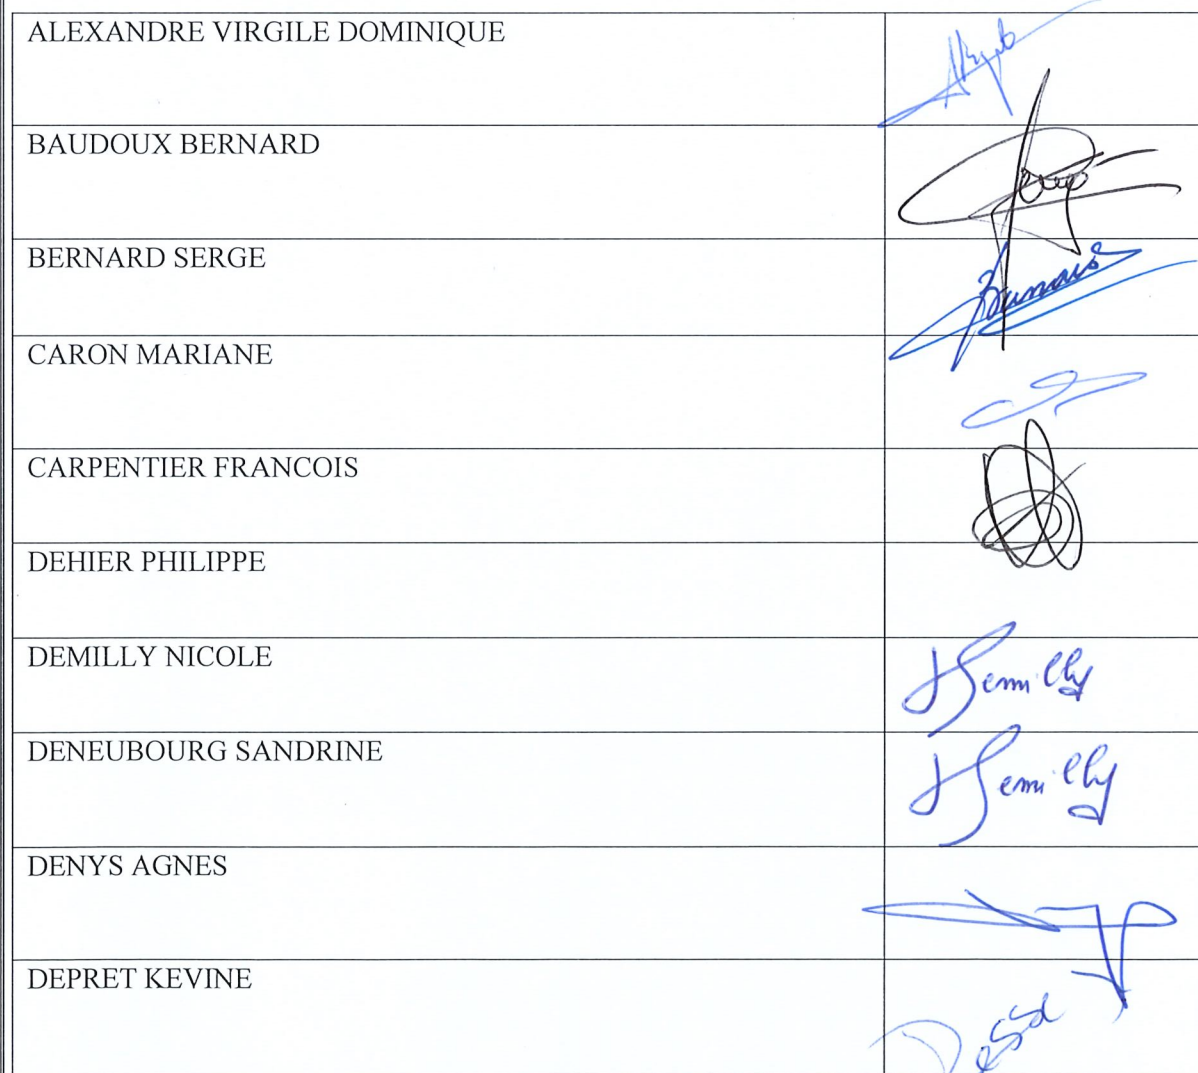 ALEXANDRE VIRGILE DOMINIQUE
BAUDOUX BERNARD
BERNARD SERGE
CARON MARIANE
CARPENTIER FRANCOIS
DEHIER PHILIPPE
DEMILLY NICOLE
Demilly
DENEUBOURG SANDRINE
Demilly
DENYS AGNES
DEPRET KEVINE